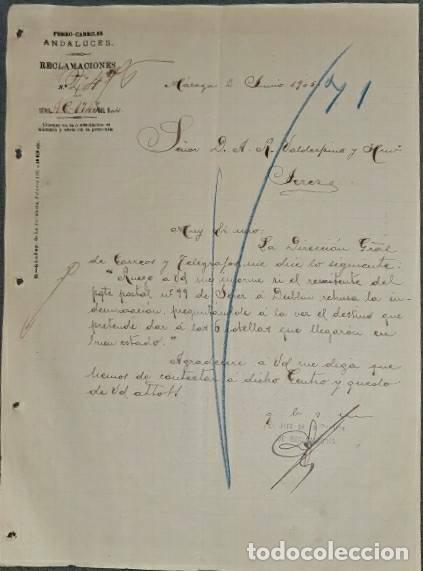 FERRO-CARRILES
ANDALUCES.
RECLAMACIONES
N.º
Málaga 2 Junio 1905
71
Señor D. A. R. Valdespino y Hnº
Jerez
Muy Sr mio:
La Dirección Gral
de Correos y Telégrafos me dice lo siguiente:
"Ruego a Vd me informe si el remitente del
pqte postal nº 99 de Jerez à Dublin rehusa la in-
demnización, preguntandole á la vez el destino que
pretende dar á las 6 botellas que llegarón en
buen estado."
Agradeceré a Vd me diga que
hemos de contestar á dicho Centro y quedo
de Vd atto
q b s m
todocoleccion.net